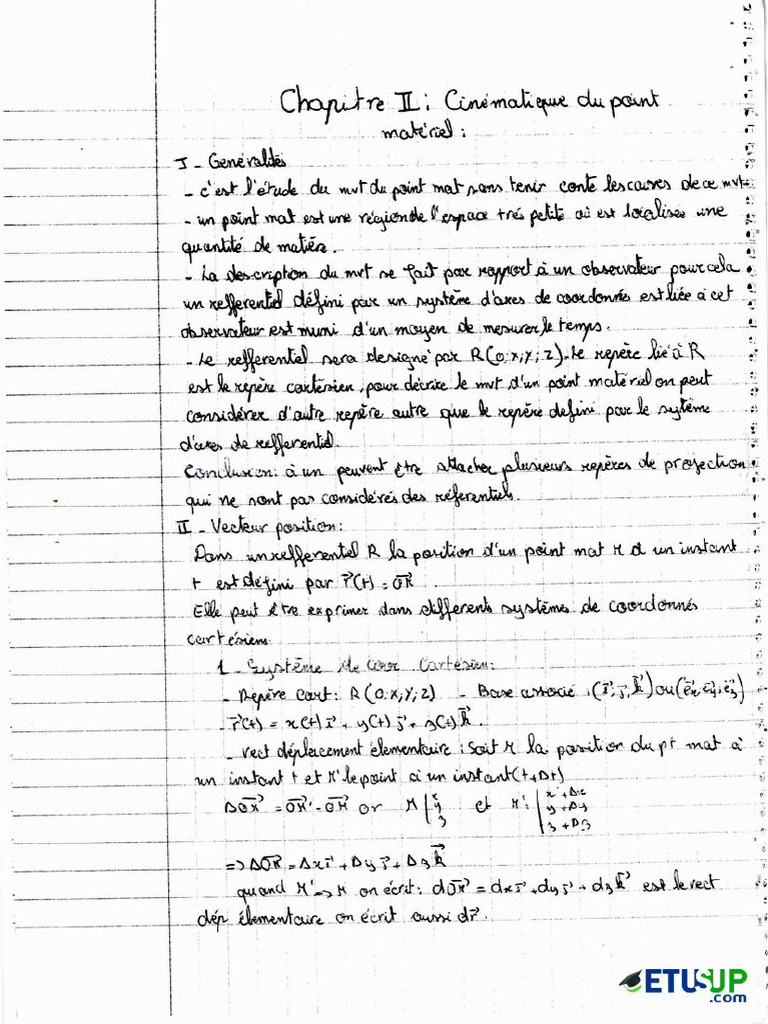 Chapitre II : Cinématique du point
matériel :
I - Généralités
- c'est l'étude du mvt du point mat sans tenir conte les causes de ce mvt.
- un point mat est une région de l'espace très petite où est localisée une
quantité de matière.
- La description du mvt se fait par rapport à un observateur pour cela
un refferentiel défini par un système d'axes de coordonnés est liée à cet
observateur est muni d'un moyen de mesurer le temps.
- Le refferentiel sera designé par R(O.X;Y;Z). Le repère lié à R
est le repère cartésien, pour décrire le mvt d'un point matériel on peut
considérer d'autre repère autre que le repère defini par le système
d'axes de refferentiel.
Conclusion: à un peuvent être attacher plusieurs repères de projection
qui ne sont pas considérés des référentiels.
II - Vecteur position:
Dans un refferentiel R la position d'un point mat M à un instant
t est défini par r⃗(t) = OM⃗.
Elle peut être exprimer dans differents systèmes de coordonnés
cartésiens
1 - Système de coor Cartésien:
- Repère cart: R(O.X,Y,Z) - Base associé : (i⃗; j⃗; k⃗) ou (e⃗x, e⃗y, e⃗z)
- r⃗(t) = x(t) i⃗ + y(t) j⃗ + z(t) k⃗.
- vect déplacement élementaire : Soit M la position du pt mat à
un instant t et M' le point à un instant (t+Δt)
ΔOM⃗ = OM⃗' - OM⃗ or M | x y z et M': | x+Δx y+Δy z+Δz
=> ΔOM⃗ = Δx i⃗ + Δy j⃗ + Δz k⃗
quand M' -> M on écrit: dOM⃗ = dx i⃗ + dy j⃗ + dz k⃗ est le vect
dép élementaire on écrit aussi dr⃗.
ETUSUP
.com